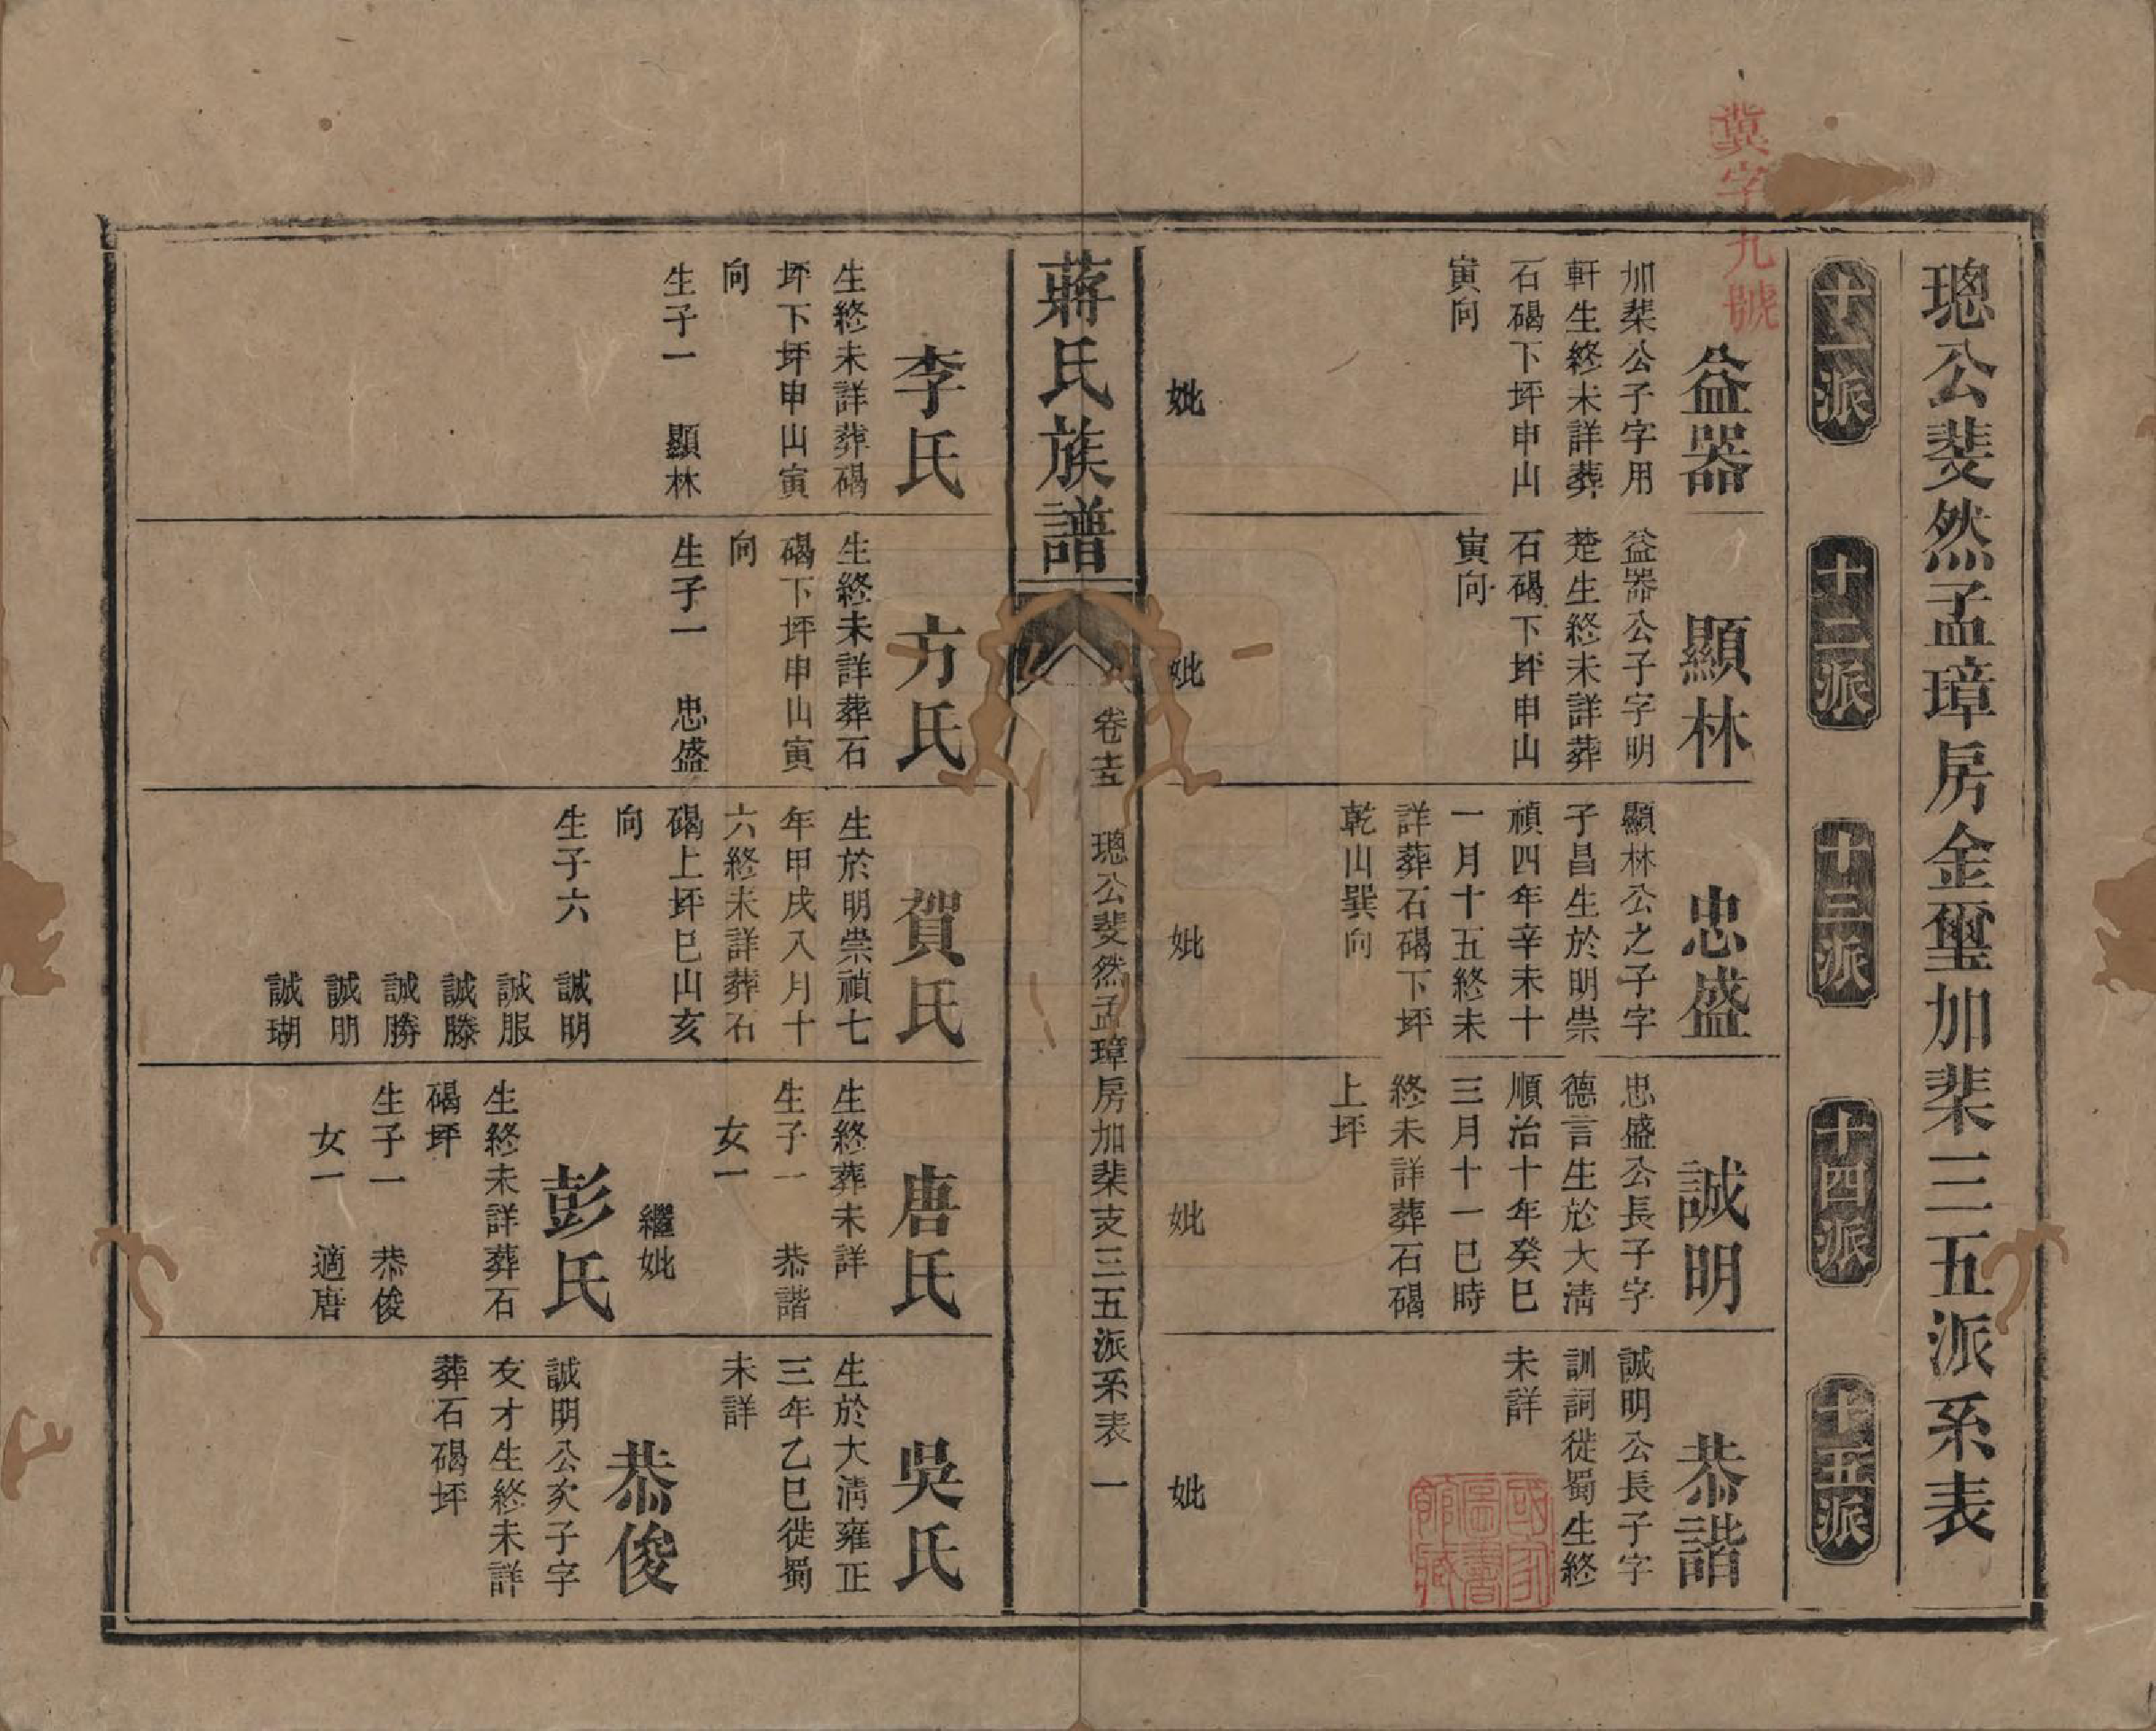 冀字九號
璁公斐然孟璋房金璽加棐三五派系表
十一派
十二派
十三派
十四派
十五派
益器
加棐公子字用
軒生終未詳葬
石碣下坪申山
寅向
妣
顯林
益器公子字明
楚生終未詳葬
石碣下坪申山
寅向
妣
忠盛
顯林公之子字
子昌生於明崇
禎四年辛未十
一月十五終未
詳葬石碣下坪
乾山巽向
妣
誠明
忠盛公長子字
德言生於大清
順治十年癸巳
三月十一巳時
終未詳葬石碣
上坪
妣
恭諧
誠明公長子字
訓詞徙蜀生終
未詳
妣
國家圖書館藏
蔣氏族譜
卷十五
璁公斐然孟璋房加棐支三五派系表
一
李氏
生終未詳葬碣
坪下坪申山寅
向
生子一 顯林
方氏
生終未詳葬石
碣下坪申山寅
向
生子一 忠盛
賀氏
生於明崇禎七
年甲戌八月十
六終未詳葬石
碣上坪巳山亥
向
生子六 誠明
誠服
誠滕
誠勝
誠朋
誠瑚
唐氏
生終葬未詳
生子一 恭諧
女一
繼妣
彭氏
生終未詳葬石
碣坪
生子一 恭俊
女一 適唐
吳氏
生於大清雍正
三年乙巳徙蜀
未詳
恭俊
誠明公次子字
友才生終未詳
葬石碣坪